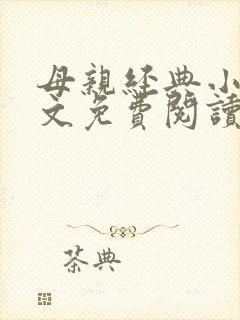 母親經典小
文免費閱讀
茶典